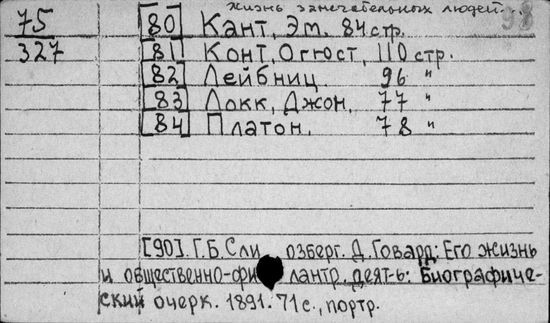 Жизнь замечательных людей.
75 [80] Кант, Эм. 84 стр.
327 [81] Конт, Огюст, 110 стр.
[82] Лейбниц 96 "
[83] Локк, Джон, 77 "
[84] Платон, 78 "
[90]. Г.Б. Сли озберг. Д. Говард: Его жизнь
и общественно-фи лантр. деят-ь: Биографиче-
ский очерк. 1891. 71 с., портр.